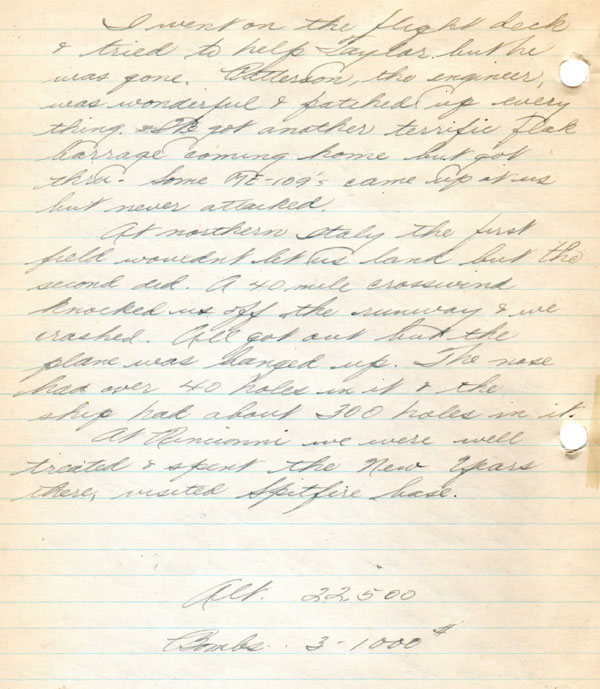 I went on the flight deck
& tried to help Taylor but he
was gone. Patterson, the engineer,
was wonderful & patched up every
thing. We got another terrific flak
barrage coming home but got
thru. Some ME-109's came up at us
but never attacked.
At northern Italy the first
field wouldnt let us land but the
second did. A 40 mile crosswind
knocked us off the runway & we
crashed. All got out but the
plane was banged up. The nose
had over 40 holes in it & the
ship had about 300 holes in it.
At we were well
treated & spent the New Years
there, visited Spitfire base.
Alt. 22500
Bombs. 3-1000#